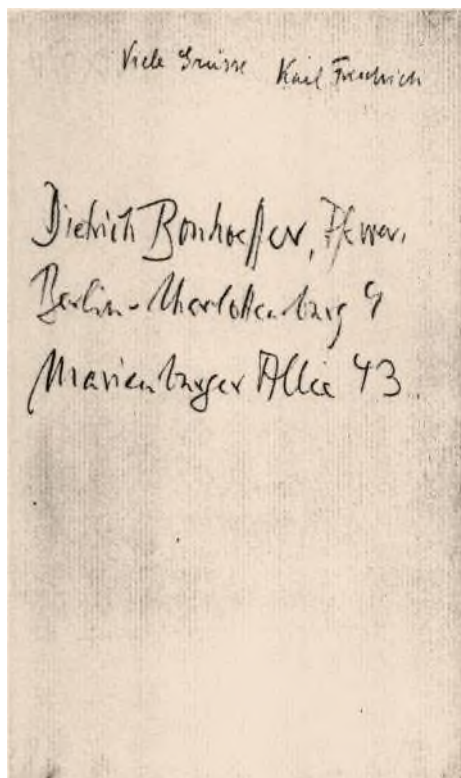 Viele Grüsse Karl Friedrich
Dietrich Bonhoeffer, Pfarrer,
Berlin-Charlottenburg 9
Marienburger Allee 43.